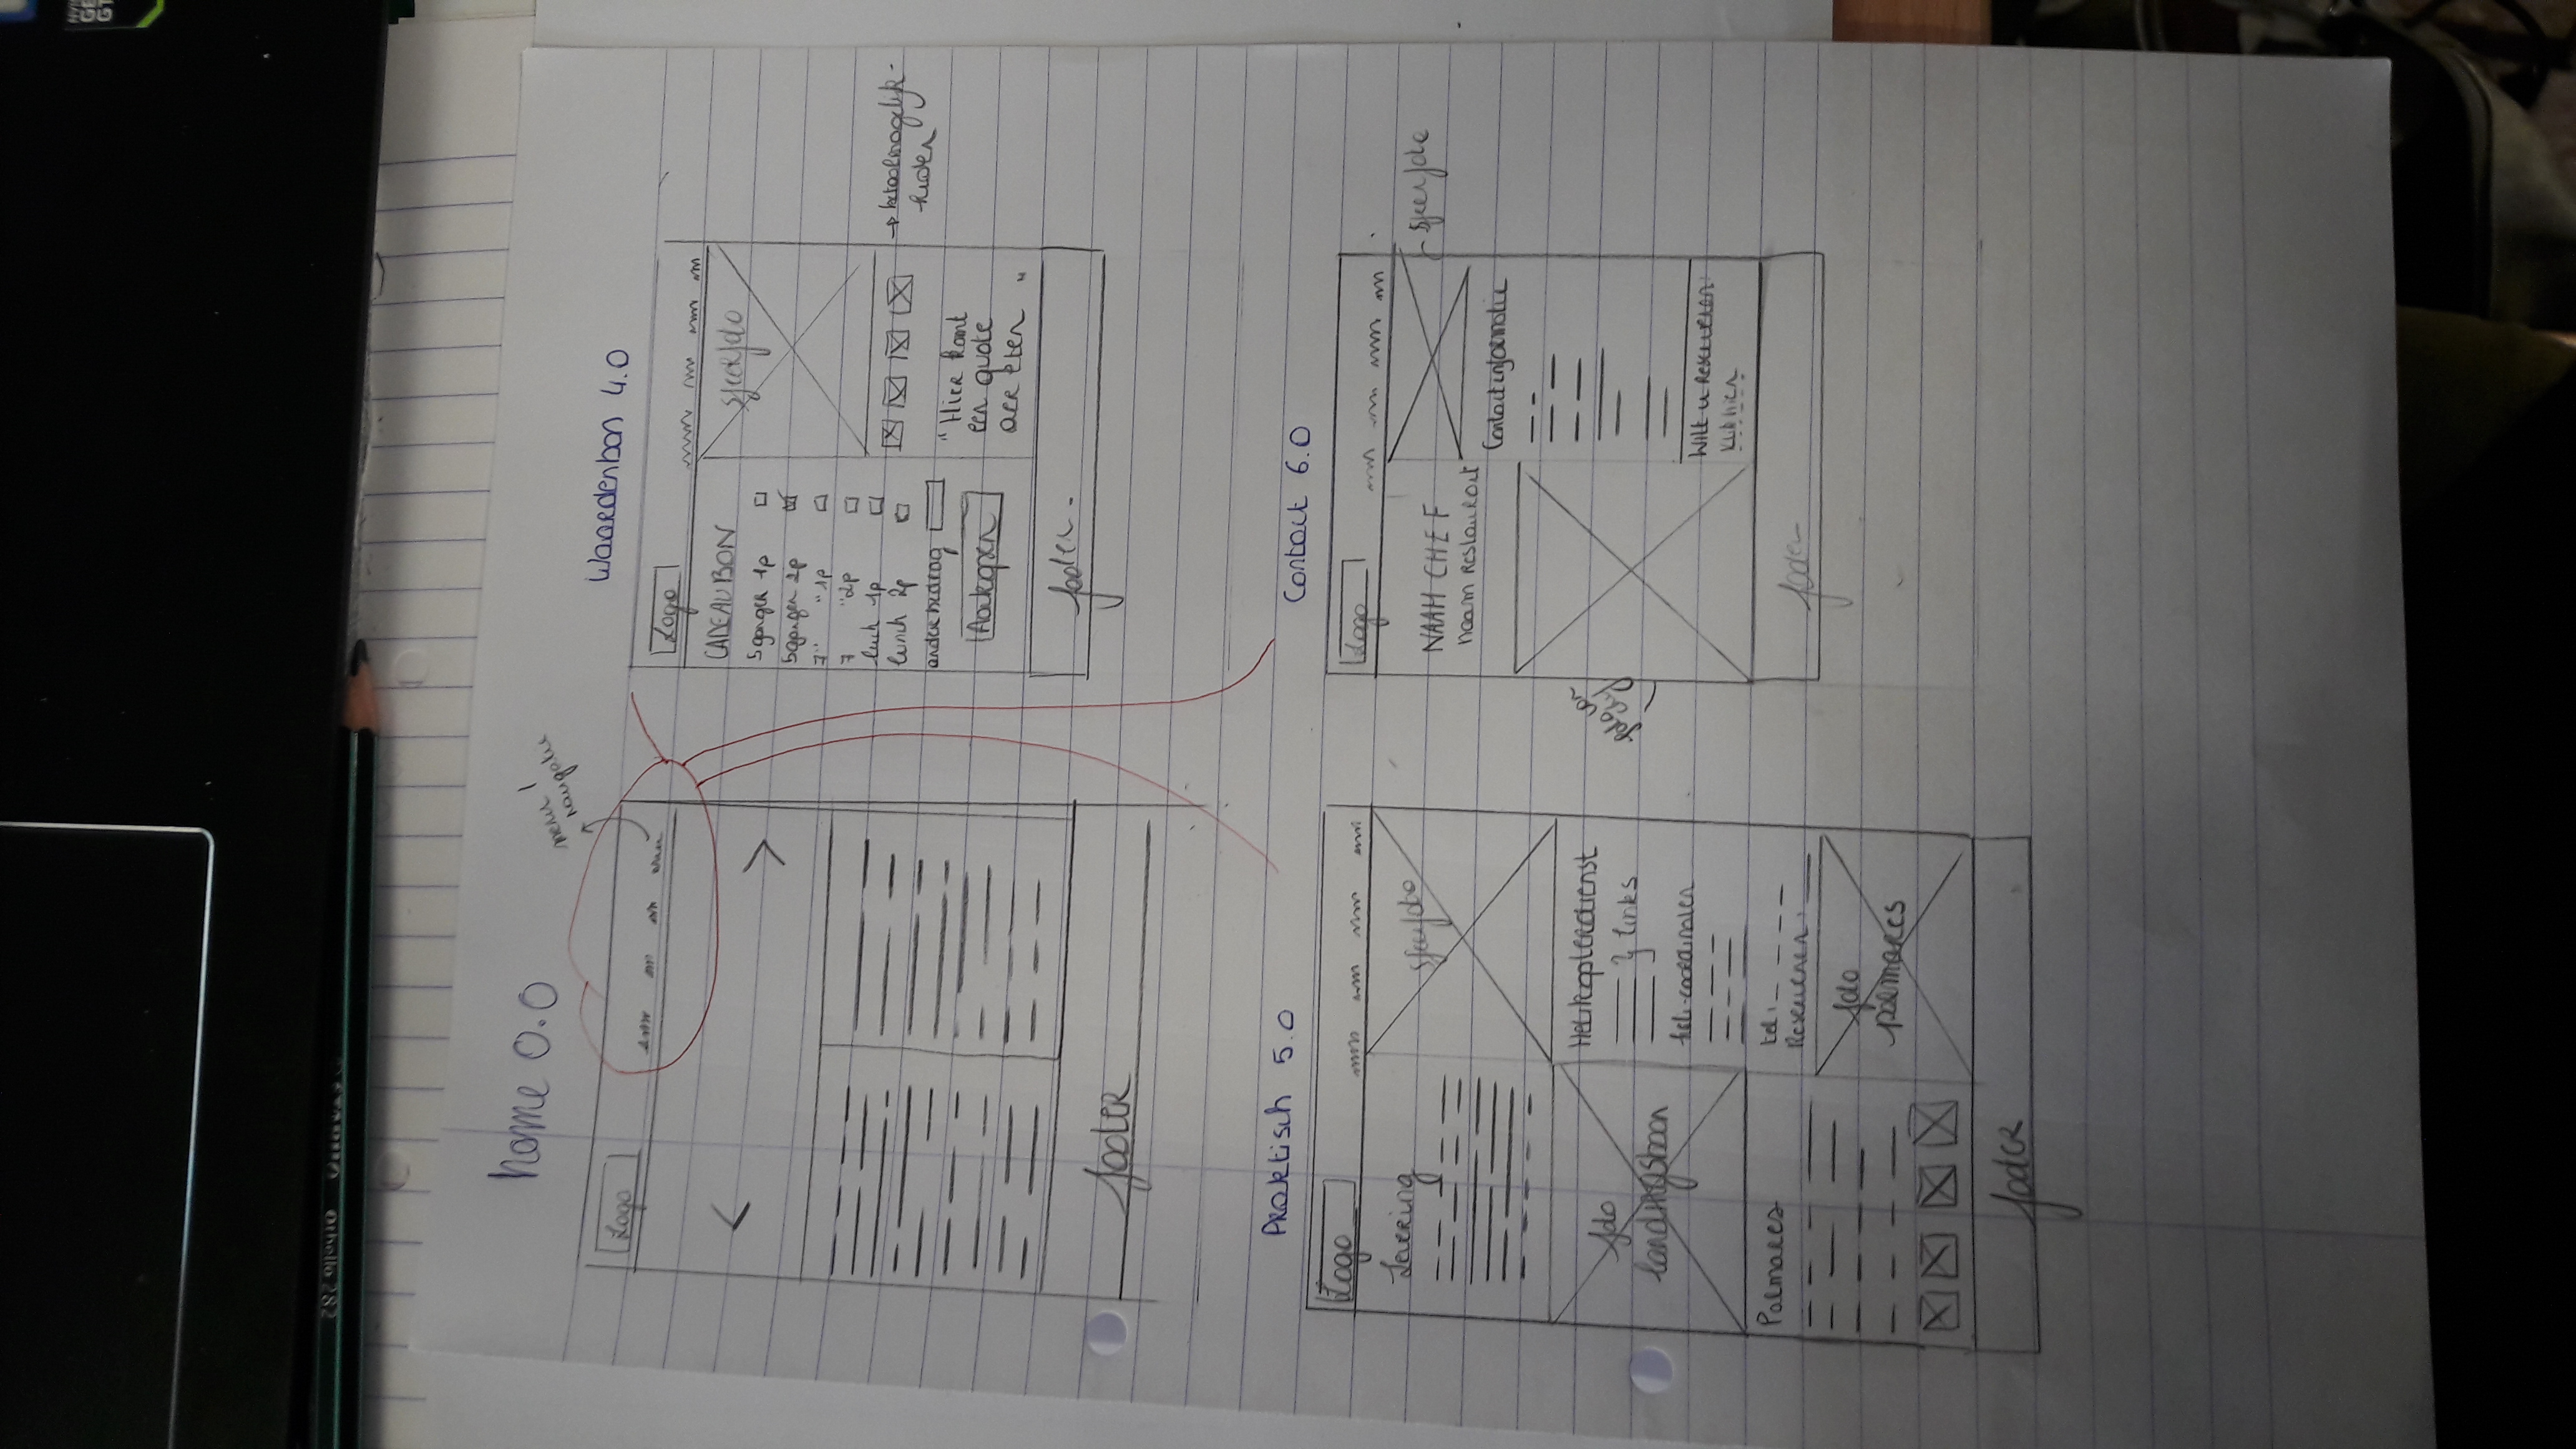 NVI
GE
GT
Othello 282
home 0.0
menu /
navigatie
Logo
footer
Waardenbon 4.0
Logo
CADEAUBON
sfeerfoto
5 gangen 1p
5 gangen 2p
7 " " 1p
7 " 2p
lunch 1p
lunch 2p
ander bedrag
→ betaalmogelijk-
heden
"Hier komt
een quote
over eten "
footer.
Praktisch 5.0
Logo
Levering
sfeerfoto
foto
landingsbaan
Helikopterdienst
} links
heli-coordinaten
Palmares
tel:
Reserveren:
foto
palmares
footer
Contact 6.0
Logo
sfeerfoto
NAAM CHEF
naam restaurant
Contactinformatie
foto van
chef
Wilt u reserveren:
klik hier
footer